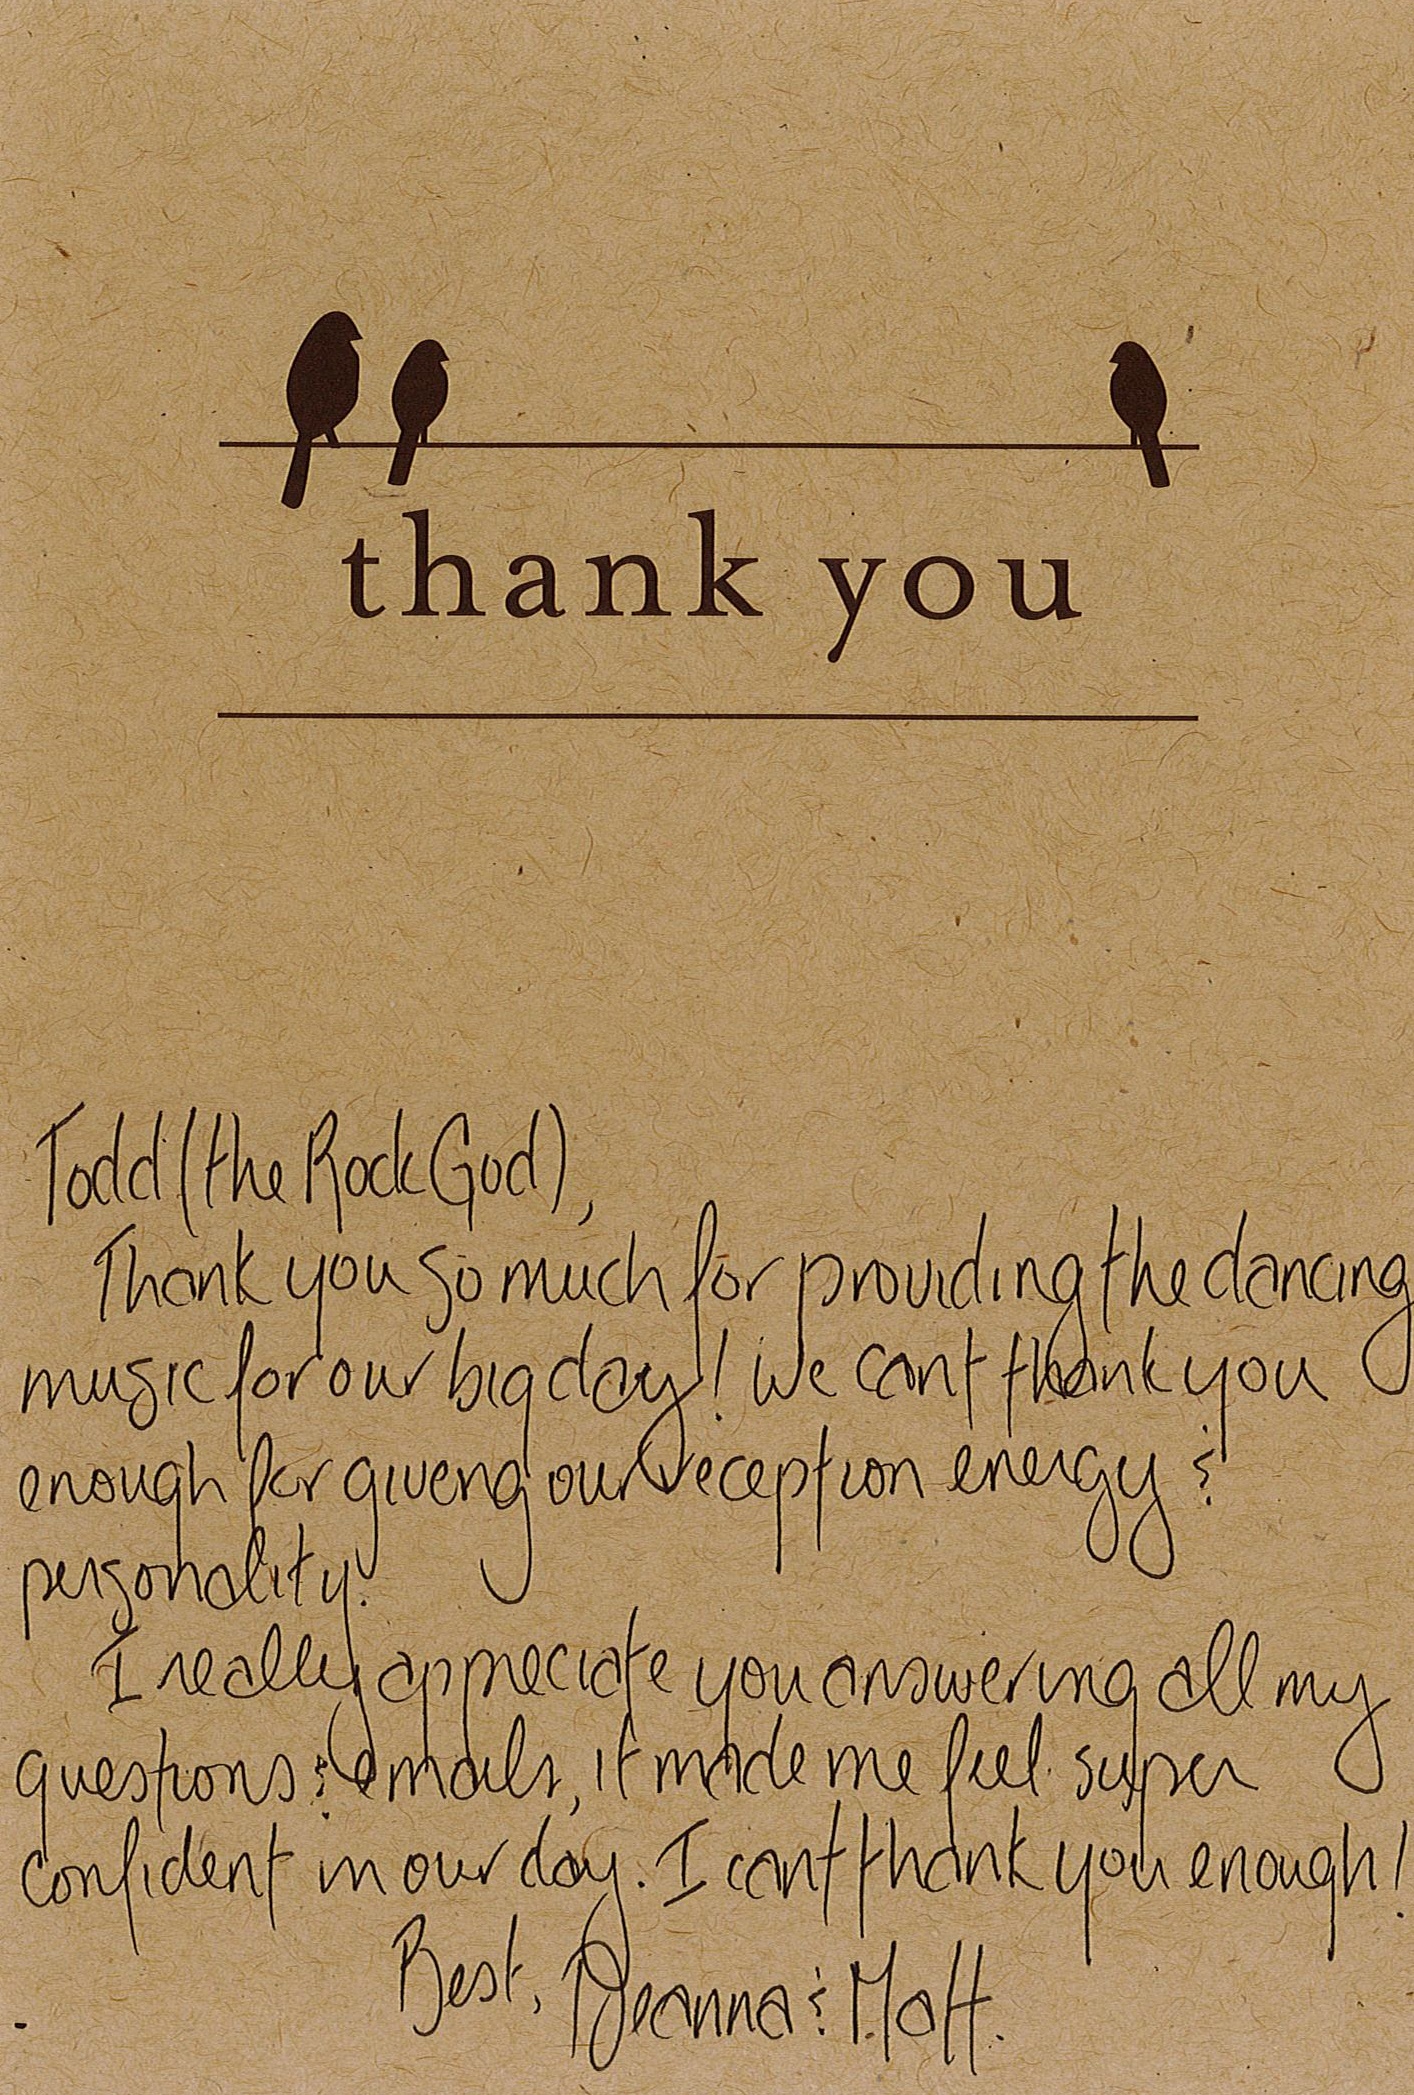 thank you
Todd (the Rock God),
Thank you so much for providing the dancing
music for our big day! We cant thank you
enough for giveng our reception energy &
personality.
I really appreciate you answering all my
questions & emails, it made me feel super
confident in our day. I cant thank you enough!
Best, Deanna & Matt.